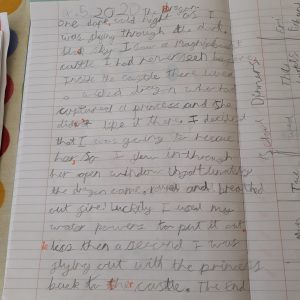 5.20 20 The Dragon
One dark, cold night as I
was flying through the dark
sky I saw a magnificent
castle I had never seen before
Inside the castle there lived
a dragon who had
captured a princess and she
didn't like it there. I decided
that I was going to rescue
her, So I flew in through
her open window Unfortunately
the dragon came, and breathed
out fire! luckily I used my
water powers to put it out.
In less then a second I was
flying out with the princess
back to the castle. The End